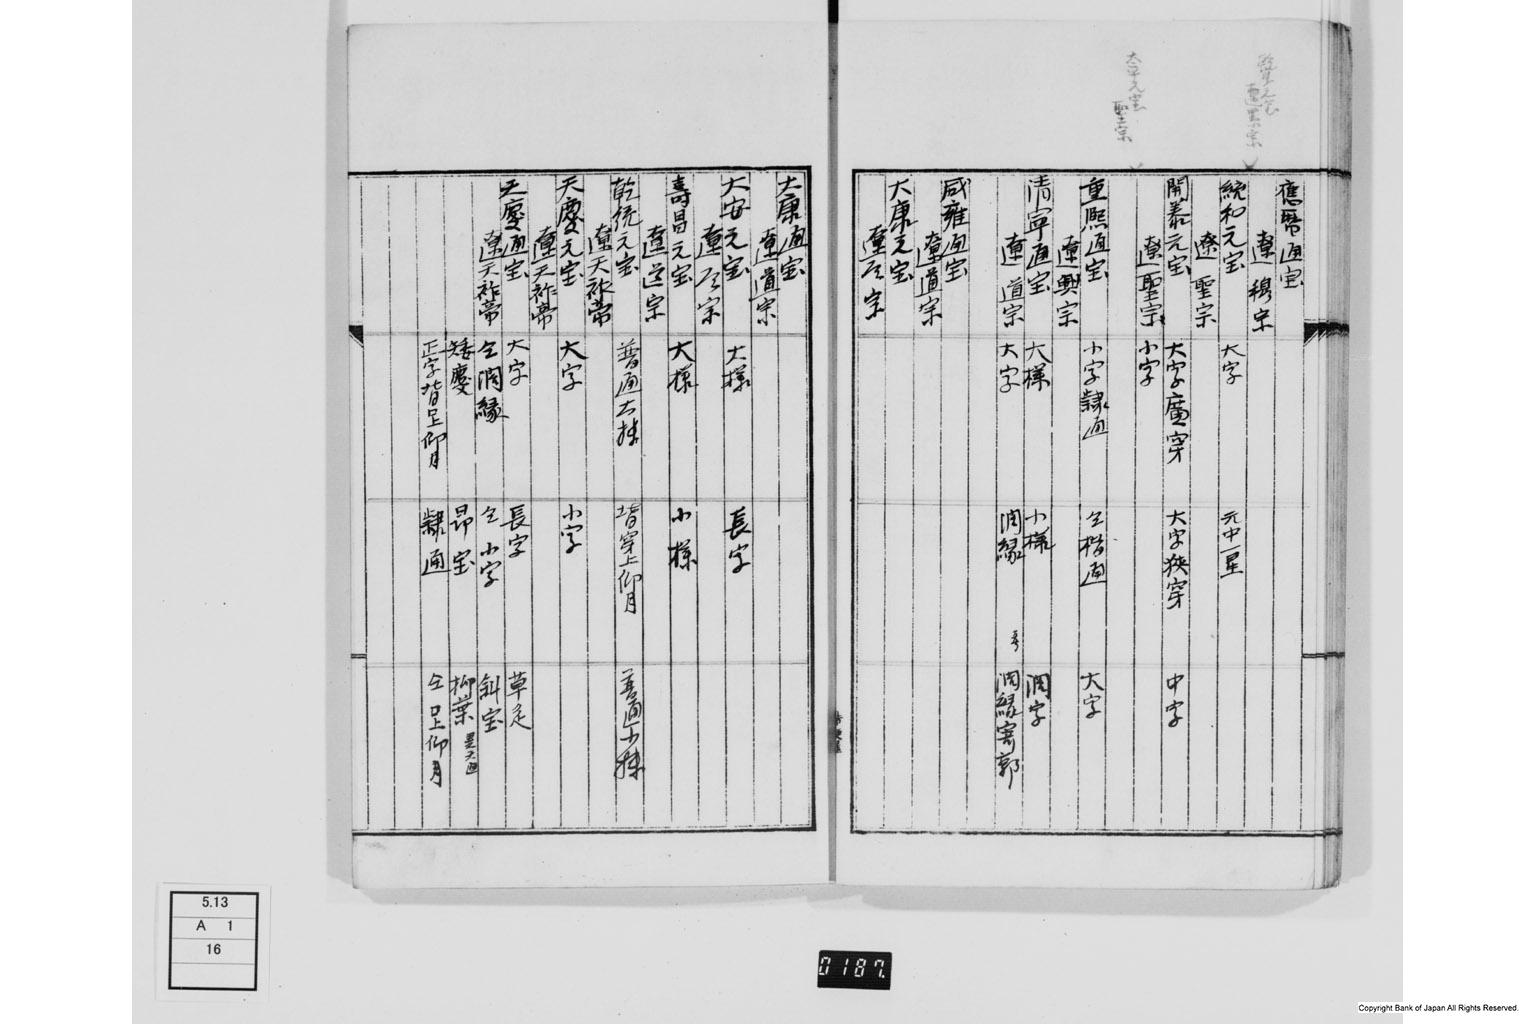 太平元宝
聖宗
應暦通宝
遼 穆宗
統和元宝
大字
元中一星
遼 聖宗
開泰元宝
大字廣穿
大字狹穿
中字
遼聖宗
小字
重熙通宝
小字隷通
仝楷通
大字
遼興宗
清寧通宝
大様
小様
濶字
遼 道宗
大字
濶縁
濶縁寄郭
咸雍通宝
遼道宗
大康元宝
遼道宗
大康通宝
遼道宗
大安元宝
大様
長字
遼道宗
壽昌元宝
大様
小様
遼道宗
乾統元宝
普通大様
背穿上仰月
普通小様
遼天祚帝
天慶元宝
大字
小字
遼天祚帝
天慶通宝
大字
長字
草足
遼天祚帝
仝濶縁
仝小字
斜宝
矮慶
昂宝
柳葉
正字背上仰月
隷通
仝 上仰月
5.13
A 1
16
0187.
Copyright Bank of Japan All Rights Reserved.